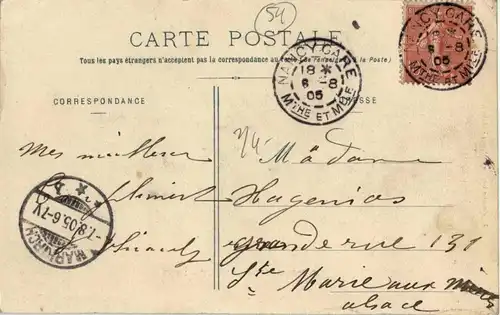 54
CARTE POSTALE
Tous les pays étrangers n'acceptent pas la correspondance au
(Se renseigner à la Poste)
CORRESPONDANCE
NANCY-GARE
18 *
6 -8
05
MTHE ET MLLE
NANCY-GARE
6 -8
05
MTHE ET MLLE
Mes meilleurs
MARKIRCH
-7.8.05.6-7V.
Madame
Hagenios
grande rue 131
Ste Marie aux Mines
Alsace